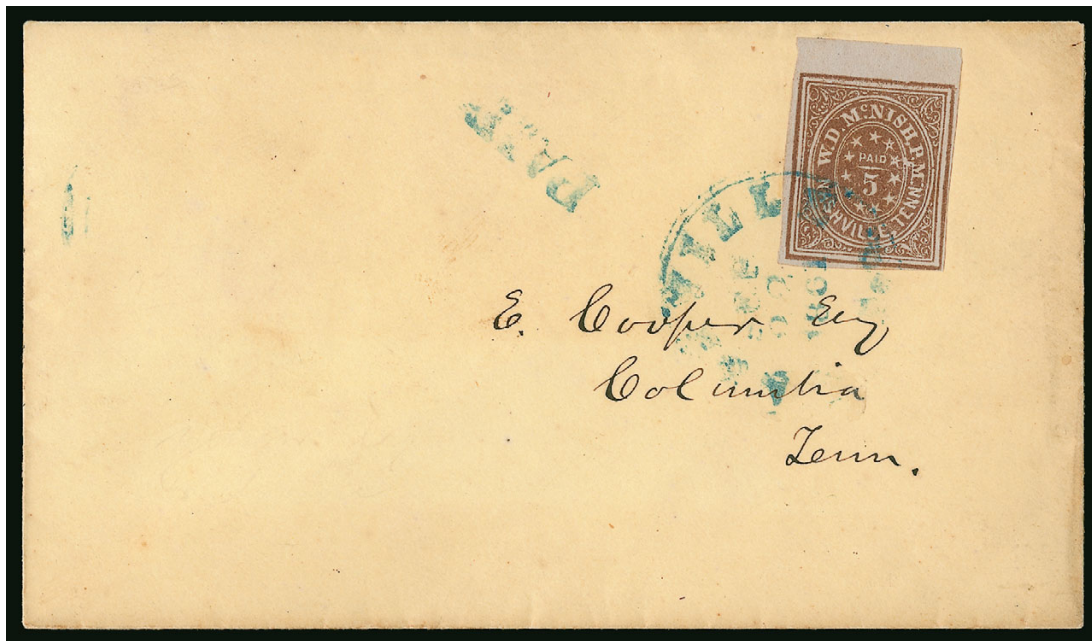 PAID
W.D. McNISH. P.M.
PAID
5
NASHVILLE, TENN.
E. Cooper Esq
Columbia
Tenn.